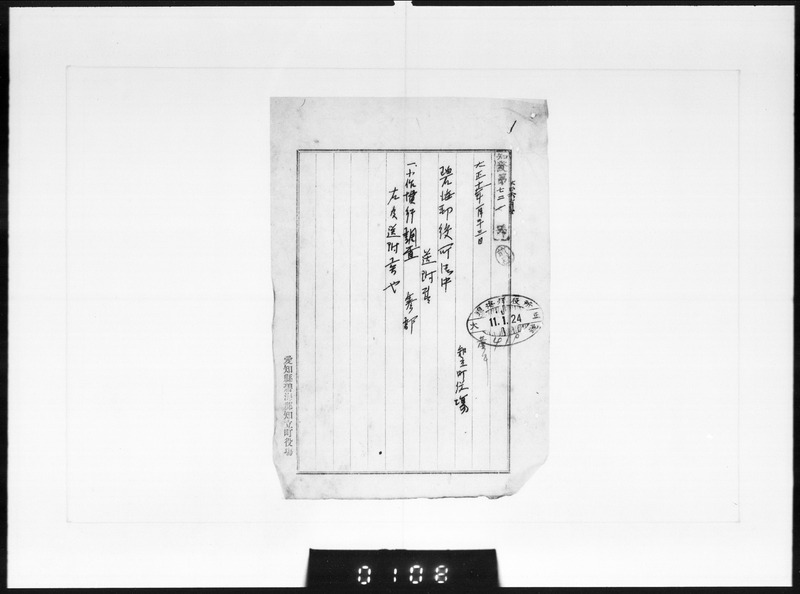 知發第七二一號
大正十一年一月二十三日
知立町役場
碧海郡役所御中
送附書
一小作慣行調査 壱部
右及送附候也
11.1.24
愛知縣碧海郡知立町役場
0108